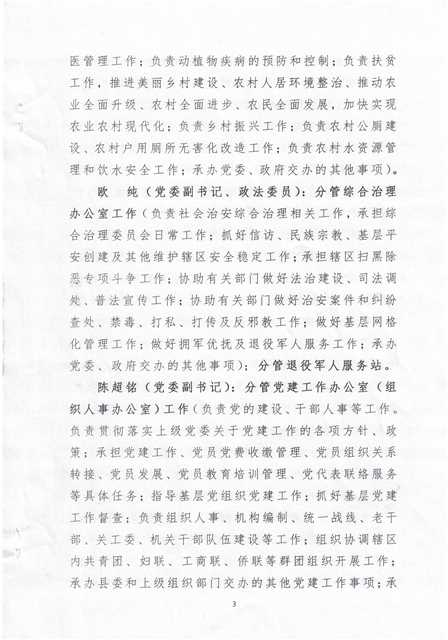 医管理工作；负责动植物疾病的预防和控制；负责扶贫
工作，推进美丽乡村建设、农村人居环境整治、推动农
业全面升级、农村全面进步、农民全面发展，加快实现
农业农村现代化；负责乡村振兴工作；负责农村公厕建
设、农村户用厕所无害化改造工作；负责农村水资源管
理和饮水安全工作；承办党委、政府交办的其他事项）。
欧　纯（党委副书记、政法委员）：分管综合治理
办公室工作（负责社会治安综合治理相关工作，承担综
合治理委员会日常工作；抓好信访、民族宗教、基层平
安创建及其他维护辖区安全稳定工作；承担辖区扫黑除
恶专项斗争工作；协助有关部门做好法治建设、司法调
处、普法宣传工作；协助有关部门做好治安案件和纠纷
查处、禁毒、打私、打传及反邪教工作；做好基层网格
化管理工作；做好拥军优抚及退役军人服务工作；承办
党委、政府交办的其他事项）；分管退役军人服务站。
陈超铭（党委副书记）：分管党建工作办公室（组
织人事办公室）工作（负责党的建设、干部人事等工作。
负责贯彻落实上级党委关于党建工作的各项方针、政
策；承担党建工作、党员党费收缴管理、党员组织关系
转接、党员发展、党员教育培训管理、党代表联络服务
等具体任务；指导基层党组织党建工作；抓好基层党建
工作督查；负责组织人事、机构编制、统一战线、老干
部、关工委、机关干部队伍建设等工作；组织协调辖区
内共青团、妇联、工商联、侨联等群团组织开展工作；
承办县委和上级组织部门交办的其他党建工作事项；承
3